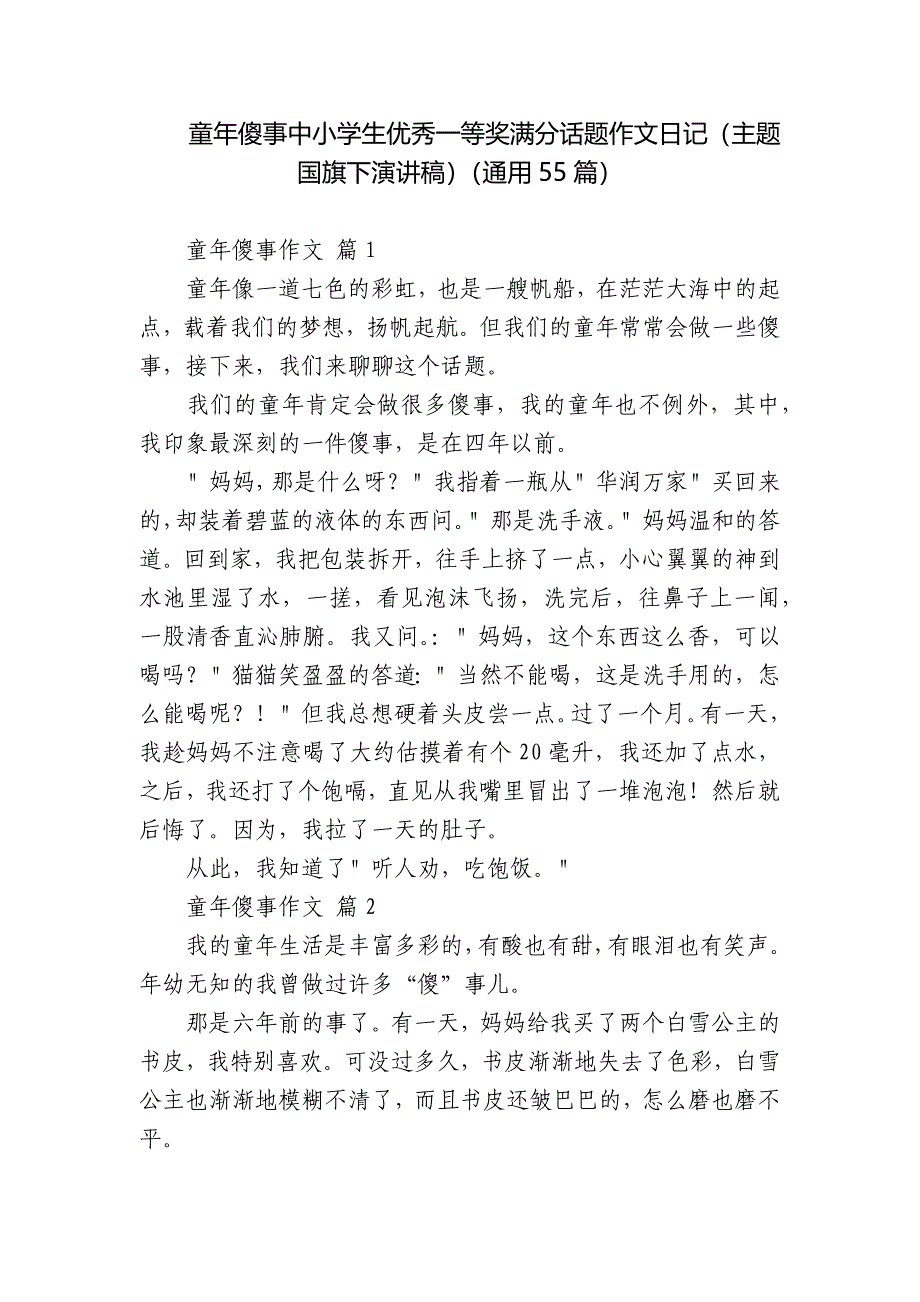 童年傻事中小学生优秀一等奖满分话题作文日记（主题
国旗下演讲稿）（通用 55 篇）
童年傻事作文 篇1
童年像一道七色的彩虹，也是一艘帆船，在茫茫大海中的起
点，载着我们的梦想，扬帆起航。但我们的童年常常会做一些傻
事，接下来，我们来聊聊这个话题。
我们的童年肯定会做很多傻事，我的童年也不例外，其中，
我印象最深刻的一件傻事，是在四年以前。
"妈妈，那是什么呀？"我指着一瓶从"华润万家"买回来
的，却装着碧蓝的液体的东西问。"那是洗手液。"妈妈温和的答
道。回到家，我把包装拆开，往手上挤了一点，小心翼翼的神到
水池里湿了水，一搓，看见泡沫飞扬，洗完后，往鼻子上一闻，
一股清香直沁肺腑。我又问。："妈妈，这个东西这么香，可以
喝吗？"猫猫笑盈盈的答道："当然不能喝，这是洗手用的，怎
么能喝呢？！"但我总想硬着头皮尝一点。过了一个月。有一天，
我趁妈妈不注意喝了大约估摸着有个20毫升，我还加了点水，
之后，我还打了个饱嗝，直见从我嘴里冒出了一堆泡泡！然后就
后悔了。因为，我拉了一天的肚子。
从此，我知道了"听人劝，吃饱饭。"
童年傻事作文 篇2
我的童年生活是丰富多彩的，有酸也有甜，有眼泪也有笑声。
年幼无知的我曾做过许多“傻”事儿。
那是六年前的事了。有一天，妈妈给我买了两个白雪公主的
书皮，我特别喜欢。可没过多久，书皮渐渐地失去了色彩，白雪
公主也渐渐地模糊不清了，而且书皮还皱巴巴的，怎么磨也磨不
平。